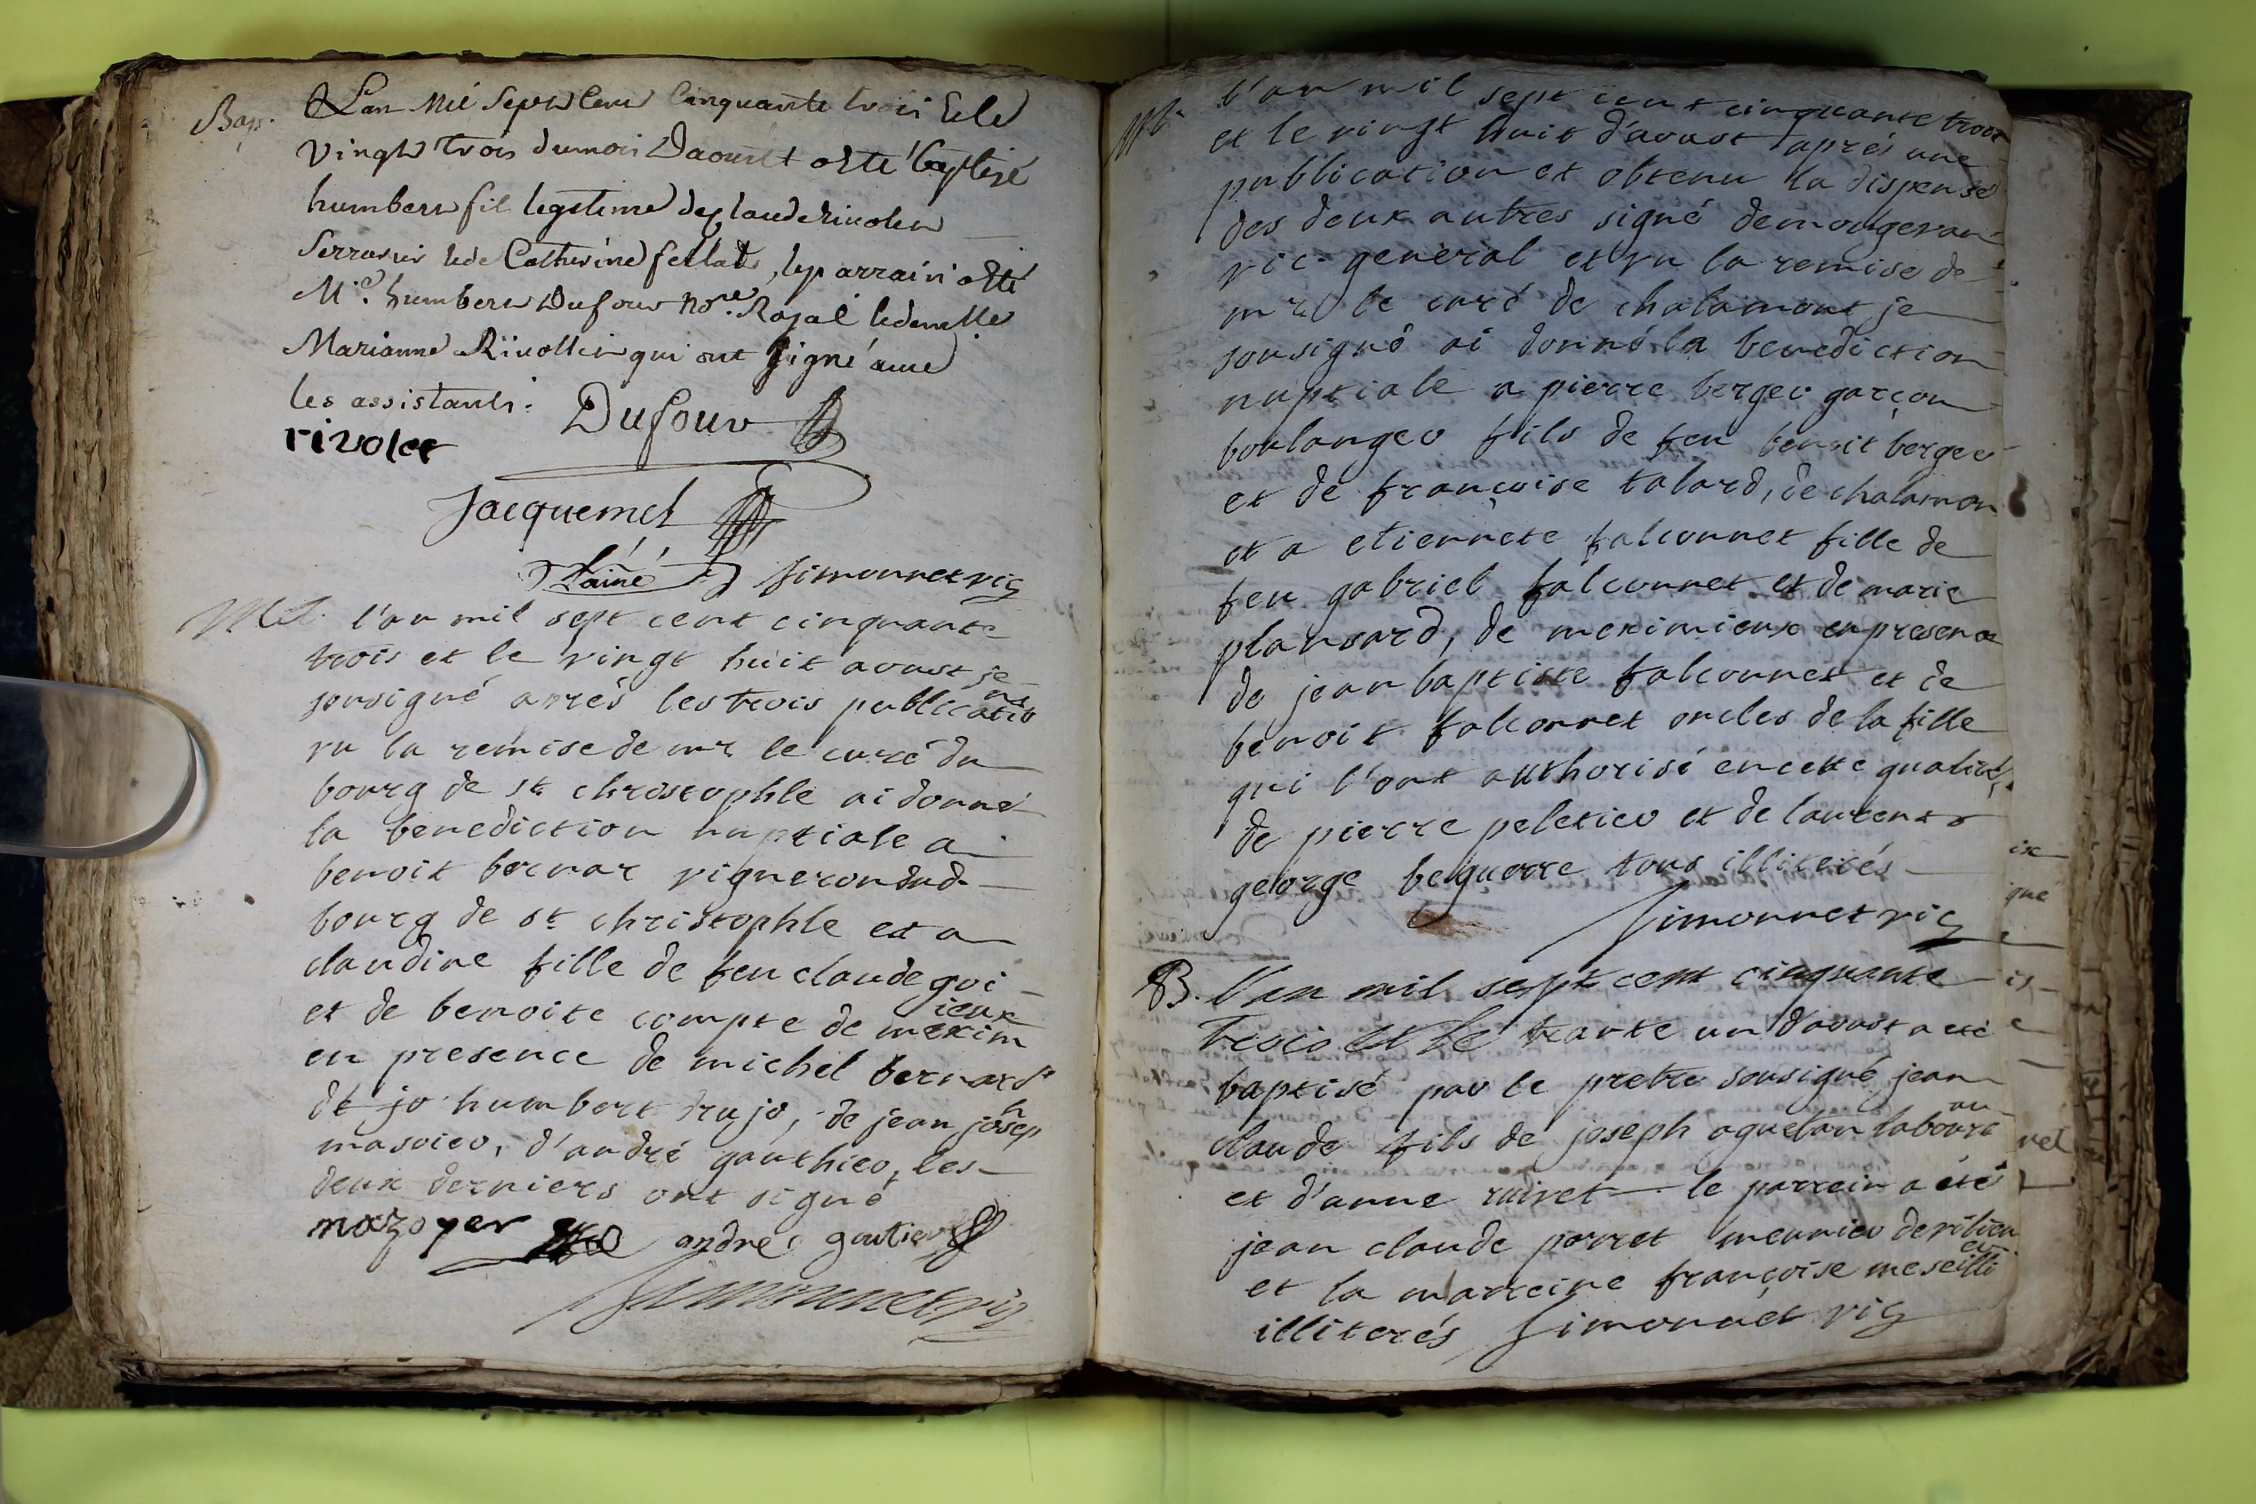 Bap.
L'an Mil Sept Cent Cinquante trois & le
Vingt trois du mois Daoust a Esté baptisé
humbert fil legetime de Claude rivolet
Serrurier & de Catherine fellat, le parrain a Eté
Mre. humbert Dufour nore. Royal & demelle
Marianne Rivollet qui ont Signé avec
les assistants.
rivolet Dufour
Jacquemet
L'ainé Simonnet vic
M. l'an mil sept cent cinquante
trois et le vingt huit aoust je
sousigné aprés les trois publications
vu la remise de mr le curé du
bourg de st christophle ai donné
la benediction nuptiale a
benoit bernar vigneron dud.
bourg de st christophle et a
claudine fille de feu claude goi
et de benoite compte de meximieux
en presence de michel bernard
de jo humbert drujo, de jean joseph
masoier, d'andré gauthier, les
deux derniers ont signé
mazoyer andre goutier
Simonnet vic
M. l'an mil sept cent cinquante trois
et le vingt huit d'aoust aprés une
publication et obtenu la dispense
des deux autres signé demongeran
vic. general et vu la remise de
mr le curé de chalamont je
sousigné ai donné la benediction
nuptiale a pierre berger garçon
boulanger fils de feu benoit berger
et de françoise talard, de chalamon
et a etiennete falconnet fille de
feu gabriel falconnet et de marie
plansard, de meximieux en presence
de jean baptiste falconnet et de
benoit falconnet oncles de la fille
qui l'ont authorisé en cette qualité,
de pierre peletier et de laurent
george beguerre tous illiterés
Simonnet vic
B. l'an mil sept cent cinquante
Trois et le trante un d'aoust a eté
baptisé par le pretre sousigné jean
claude fils de joseph aguetan laboureur
et d'anne ruivet le parrein a été
jean claude porret meunier de
et la marreine françoise
illiterés Simonnet vic